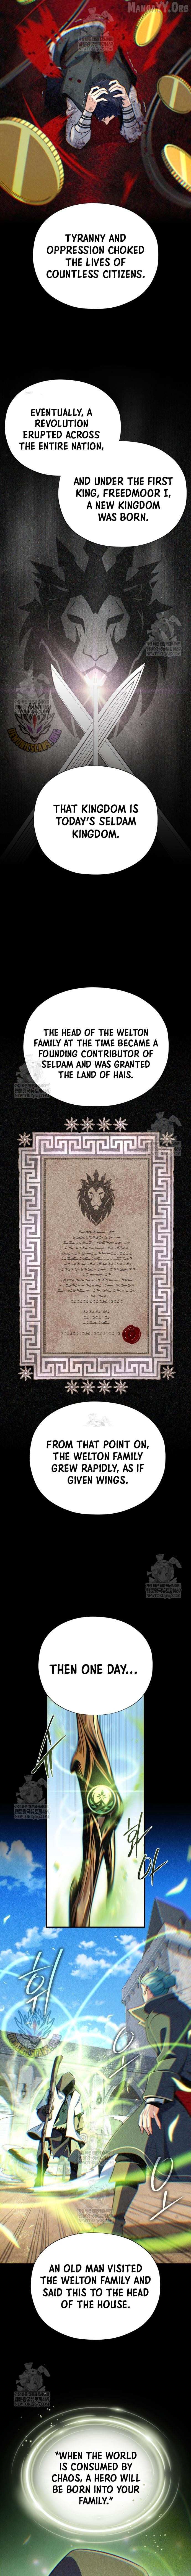 MANGAYY.ORG
TYRANNY AND
OPPRESSION CHOKED
THE LIVES OF
COUNTLESS CITIZENS.
EVENTUALLY, A
REVOLUTION
ERUPTED ACROSS
THE ENTIRE NATION,
AND UNDER THE FIRST
KING, FREEDMOOR I,
A NEW KINGDOM
WAS BORN.
THAT KINGDOM IS
TODAY'S SELDAM
KINGDOM.
THE HEAD OF THE WELTON
FAMILY AT THE TIME BECAME A
FOUNDING CONTRIBUTOR OF
SELDAM AND WAS GRANTED
THE LAND OF HAIS.
FROM THAT POINT ON,
THE WELTON FAMILY
GREW RAPIDLY, AS IF
GIVEN WINGS.
THEN ONE DAY...
AN OLD MAN VISITED
THE WELTON FAMILY AND
SAID THIS TO THE HEAD
OF THE HOUSE.
"WHEN THE WORLD
IS CONSUMED BY
CHAOS, A HERO WILL
BE BORN INTO YOUR
FAMILY."